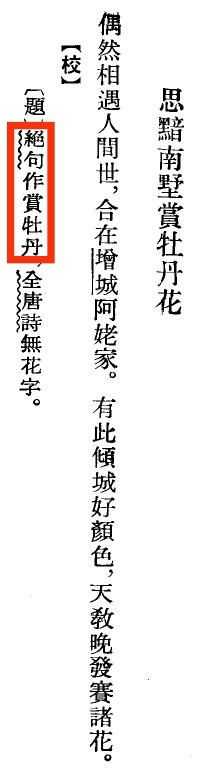 思黯南墅賞牡丹花
偶然相遇人間世，合在增城阿姥家。有此傾城好顏色，天教晚發賽諸花。
【校】
〔題〕絕句作賞牡丹，全唐詩無花字。